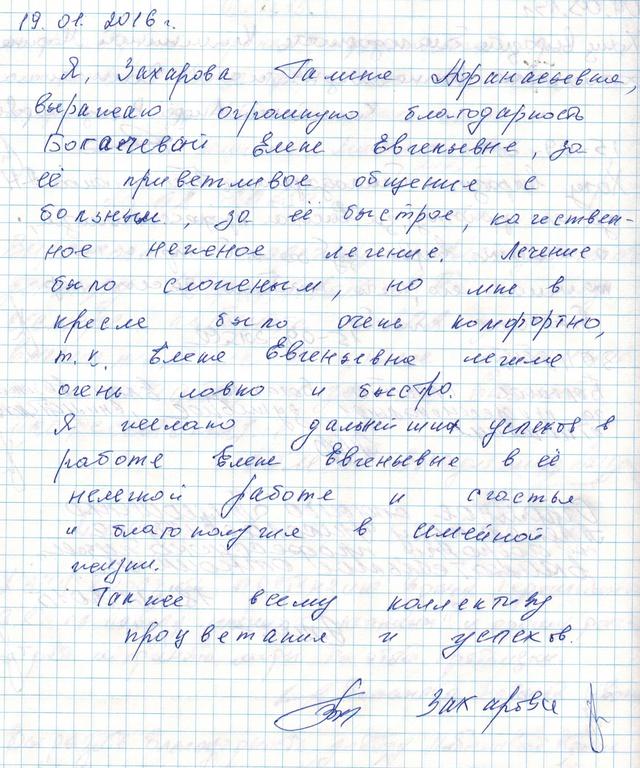 19.01.2016г.
Я, Захарова Галина Афанасьевна,
выражаю огромную благодарность
Богачевой Елене Евгеньевне, за
её приветливое общение с
больным, за её быстрое, качествен-
ное нежное лечение. Лечение
было сложным, но мне в
кресле было очень комфортно,
т.к. Елена Евгеньевна лечила
очень ловко и быстро.
Я желаю дальнейших успехов в
работе Елене Евгеньевне в её
нелегкой работе и счастья
и благополучия в семейной
жизни.
Также всему коллективу
процветания и успехов.
Захарова